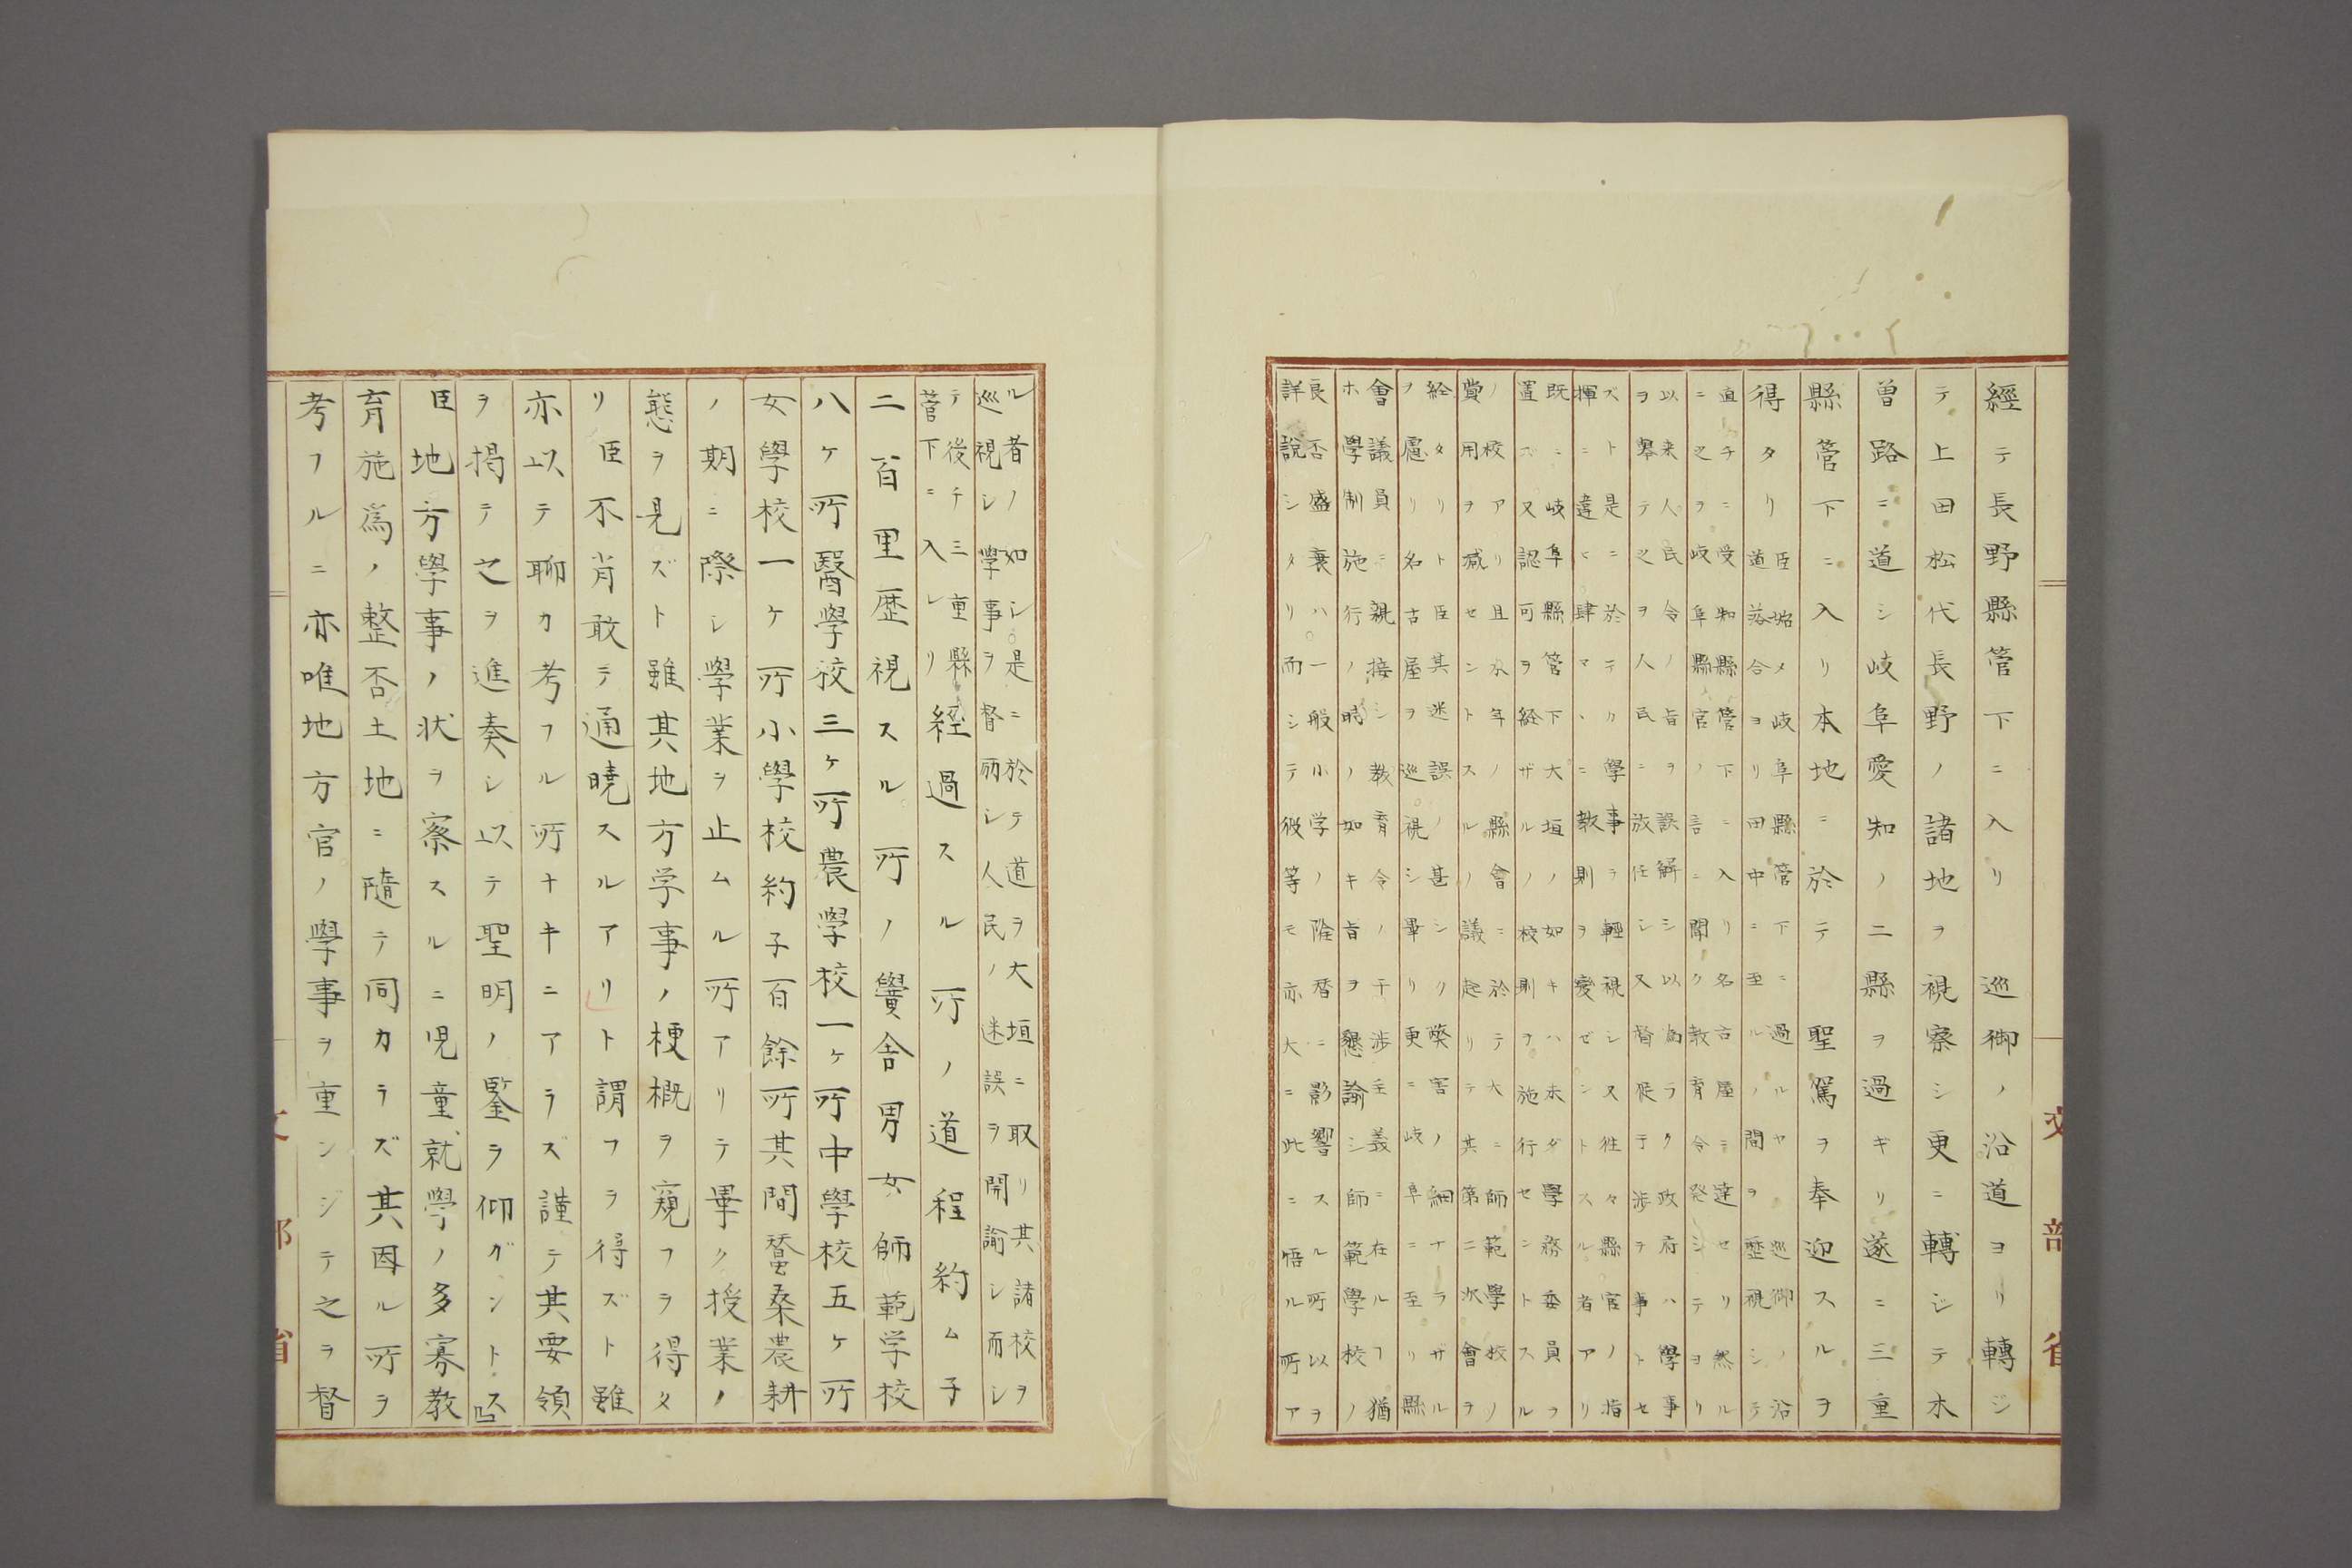 經テ長野縣管下ニ入リ　巡御ノ沿道ヨリ轉ジ
テ上田松代長野ノ諸地ヲ視察シ更ニ轉ジテ木
曽路ニ道シ岐阜愛知ノ二縣ヲ過ギリ遂ニ三重
縣管下ニ入リ本地ニ於テ　聖駕ヲ奉迎スルヲ
得タリ
臣始メ岐阜縣管下ニ過ルヤ　巡御ノ沿
道落合ヨリ田中ニ至ルノ間ヲ歴視シテ
直チニ愛知縣管下ニ入リ名古屋ニ達セリ然ル
ニ之ヲ岐阜縣官ノ言ニ聞ク教育令発シテヨリ
以来人民令ノ旨ヲ誤解シ以為ラク政府ハ學事
ヲ擧テ之ヲ人民ニ放任シ又督促テ渉ラ事トセ
ズト是ニ於テカ學事ヲ輕視シ又徃々縣官ノ指
揮ニ違ヒ肆マヽニ教則ヲ變ゼントスル者アリ
既ニ岐阜縣管下大垣ノ如キハ未ダ學務委員ヲ
置ズ又認可ヲ経ザルノ校則ヲ施行セントスル
ノ校アリ且本年ノ縣會ニ於テ大ニ師範學校ノ
費用ヲ減セントスルノ議起リテ其第二次會ヲ
経タリト臣其迷誤ノ甚シク弊害ノ細ナラザル
ヲ慮リ名古屋ヲ巡視シ畢リ更ニ岐阜ニ至リ縣
會議員ニ親接シ教育令ノ干渉主義ニ在ルフ猶
ホ學制施行ノ時ノ如キ旨ヲ懇諭シ師範學校ノ
良否盛衰ハ一般小学ノ隆替ニ影響スル所以ヲ
詳說シタリ而シテ彼等モ亦大ニ此ニ悟ル所ア
ル者ノ如シ是ニ於テ道ヲ大垣ニ取リ其諸校ヲ
巡視シ學事ヲ督励シ人民ノ迷誤ヲ開諭シ而シ
テ後チ三重縣
管下ニ入レリ
経過スル所ノ道程約ム子
二百里歴視スル所ノ黌舎男女師範学校
八ケ所醫學校三ケ所農學校一ケ所中學校五ケ所
女學校一ケ所小學校約子百餘所其間蚕桑農耕
ノ期ニ際シ學業ヲ止ムル所アリテ畢ク授業ノ
態ヲ見ズト雖其地方学事ノ梗概ヲ窺フヲ得タ
リ臣不肖敢テ通曉スルアリト謂フヲ得ズト雖
亦以テ聊カ考フル所ナキニアラズ謹テ其要領
ヲ掲テ之ヲ進奏シ以テ聖明ノ鑒ヲ仰ガントス
臣地方學事ノ状ヲ察スルニ児童就學ノ多寡教
育施爲ノ整否土地ニ隨テ同カラズ其因ル所ヲ
考フルニ亦唯地方官ノ學事ヲ重ンジテ之ヲ督
文部省